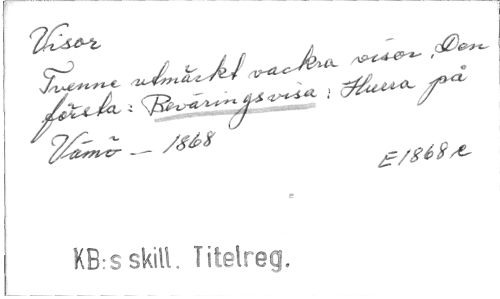 Visor
Tvenne utmärkt vackra visor. Den
första: Beväringsvisa: Hurra på
Vämö — 1868
E1868e
KB:s skill. Titelreg.